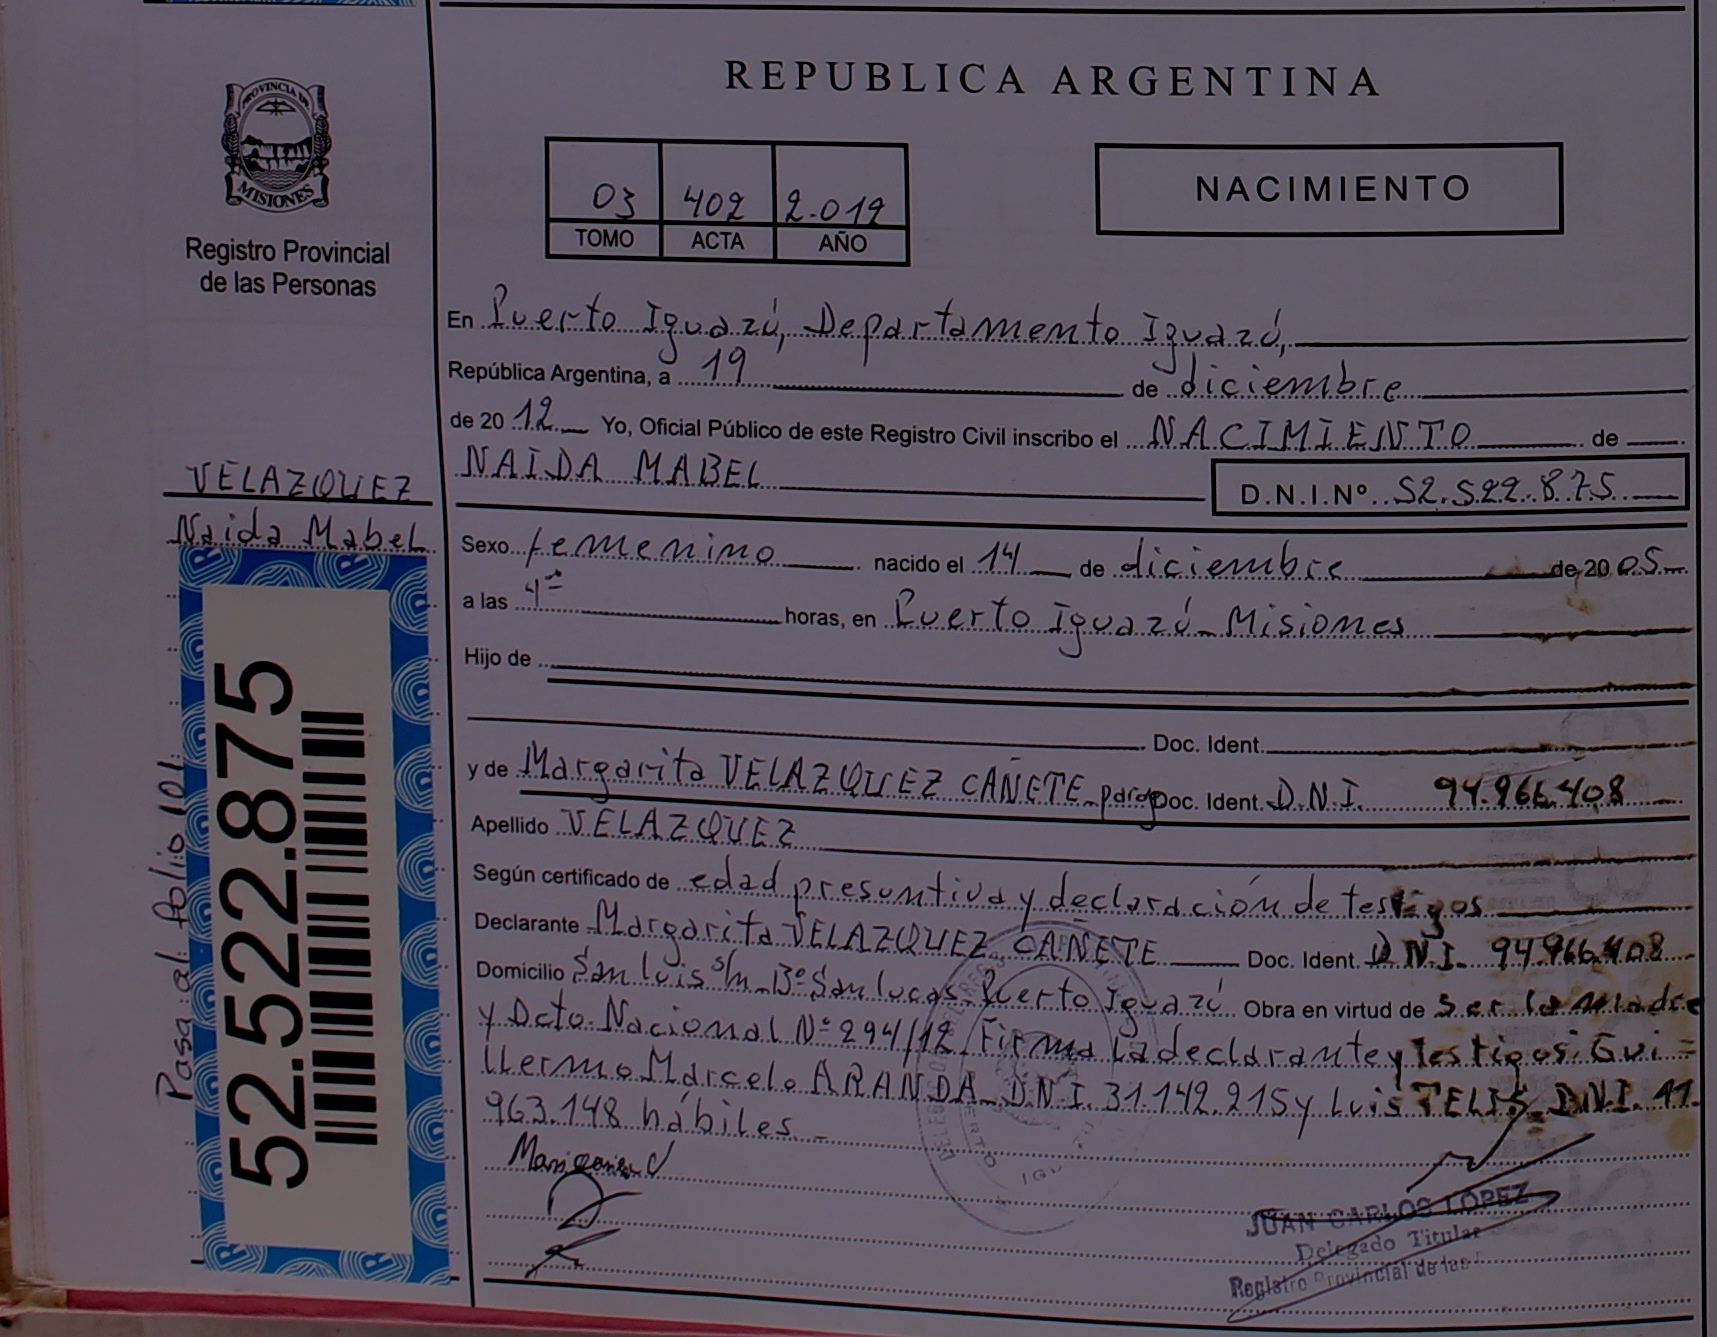 PROVINCIA DE
MISIONES
Registro Provincial
de las Personas
VELAZQUEZ
Naida Mabel
52.522.875
Pasa al folio 101
REPUBLICA ARGENTINA
03 402 2.012
TOMO ACTA AÑO
NACIMIENTO
En Puerto Iguazú, Departamento Iguazú,
República Argentina, a 19 de diciembre
de 20 12 Yo, Oficial Público de este Registro Civil inscribo el NACIMIENTO de
NAIDA MABEL D.N.I.Nº 52.522.875
Sexo femenino nacido el 14 de diciembre de 20 05
a las horas, en Puerto Iguazú - Misiones
Hijo de
Doc. Ident.
y de Margarita VELAZQUEZ CAÑETE Doc. Ident. D.N.I. 94.966.408
Apellido VELAZQUEZ
Según certificado de edad presuntiva y declaración de testigos
Declarante Margarita VELAZQUEZ CAÑETE Doc. Ident. D.N.I. 94.966.408
Domicilio San Luis s/n - Bº San Lucas - Puerto Iguazú Obra en virtud de ser la madre
y Dcto. Nacional Nº 294/12. Firma la declarante y testigos: Gui=
llermo Marcelo ARANDA D.N.I. 31.142.215 y Luis D.N.I.
963.148 hábiles -
JUAN CARLOS LOPEZ
Delegado Titular
Registro Provincial de las